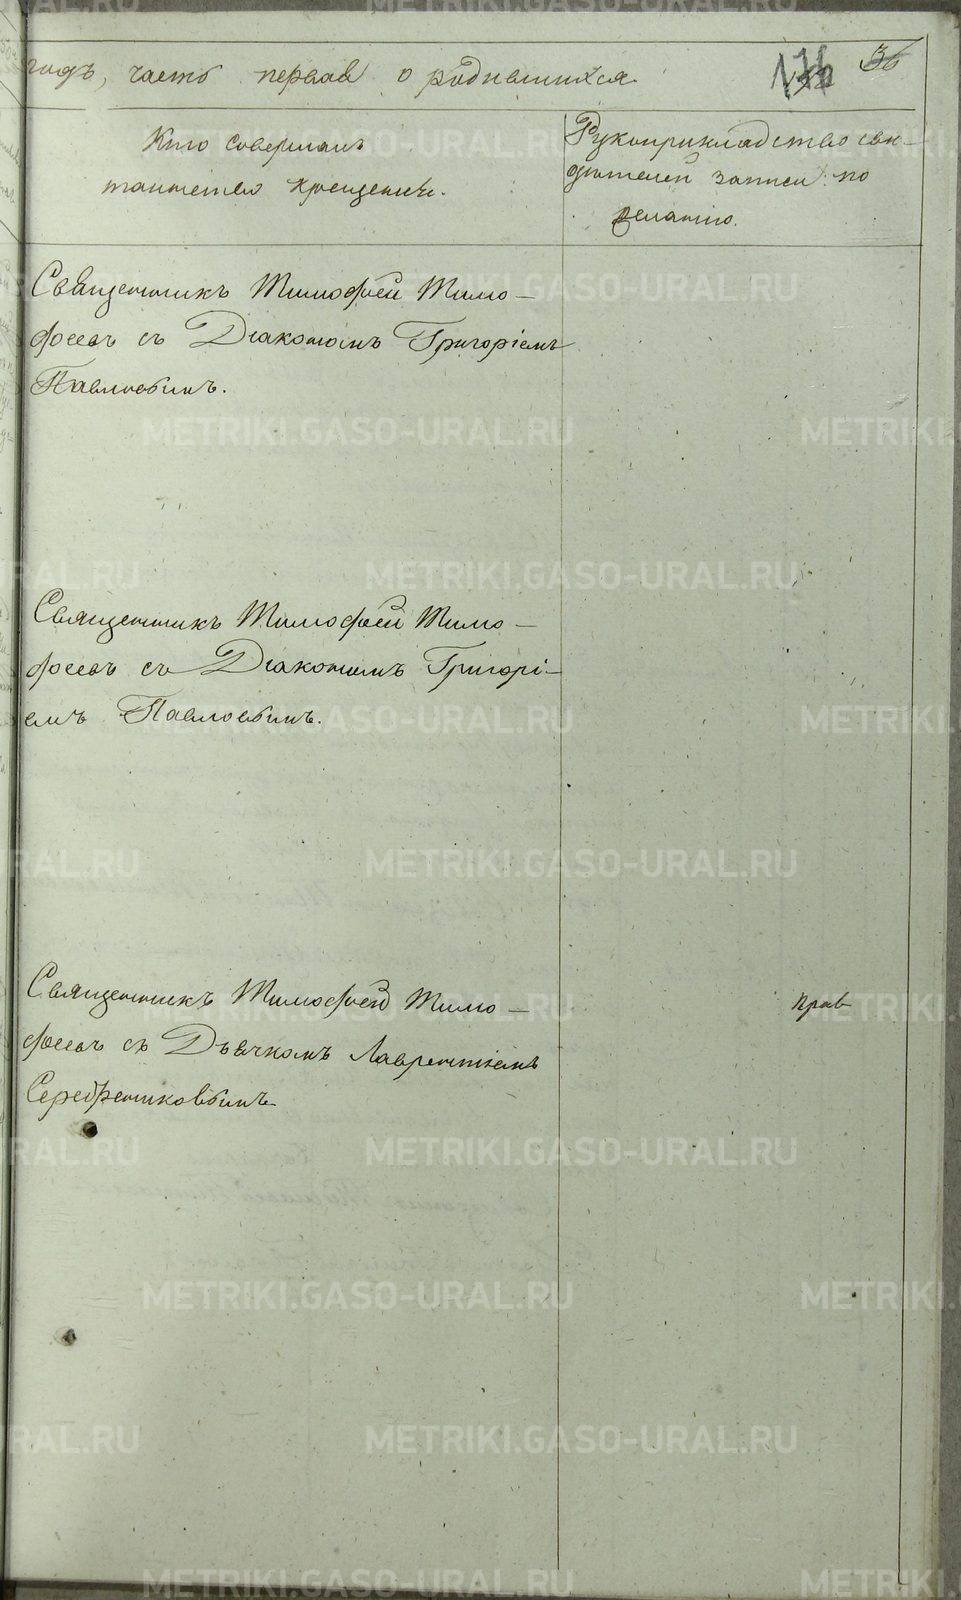 годъ, часть первая о родившихся
36
Кто совершалъ
таинство крещенія.
Рукоприкладство сви-
дѣтелей записи по
желанію.
Священникъ Тимофей Тимо-
фѣевъ съ Діакономъ Григоріемъ
Павловымъ.
Священникъ Тимофей Тимо-
фѣевъ съ Діакономъ Григорі-
емъ Павловымъ.
Священникъ Тимофей Тимо-
фѣевъ съ Дьячкомъ Лаврентіемъ
Серебренниковымъ
METRIKI.GASO-URAL.RU